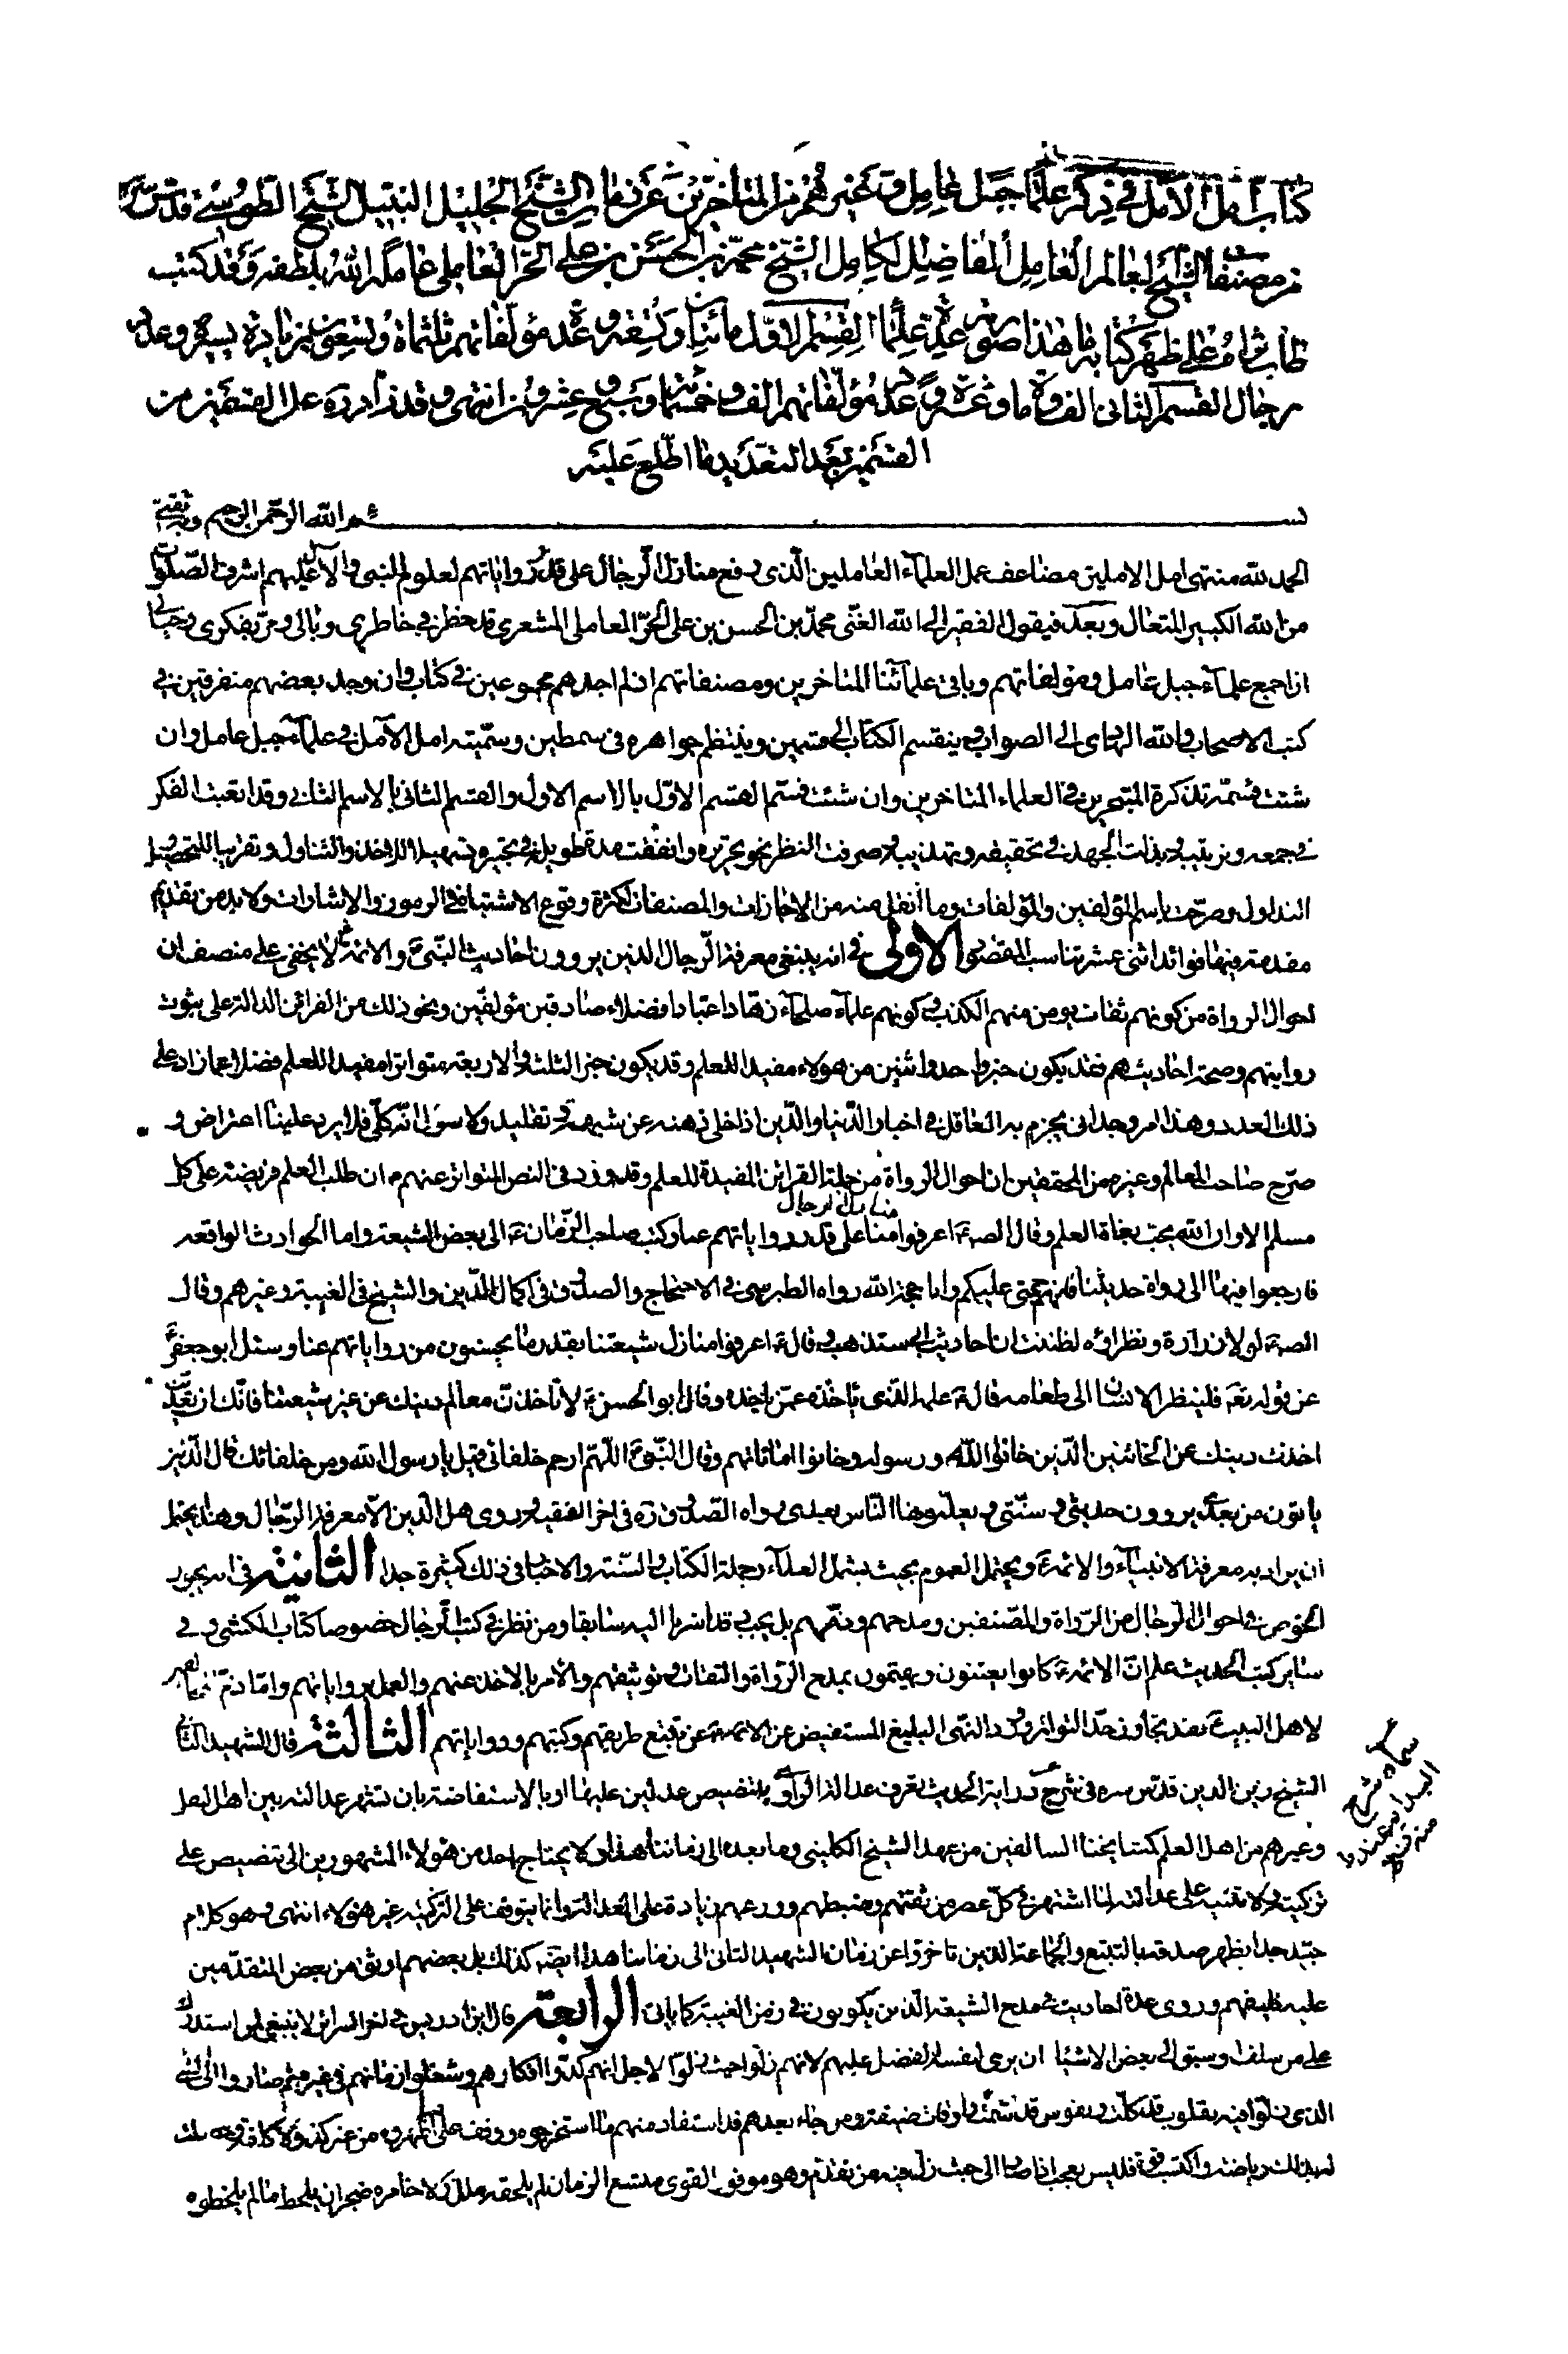 كتاب امل الآمل في ذكر علماء جبل عامل وغيرهم من المتأخرين عن زمان الشيخ الجليل النبيل الشيخ الطوسي قدس سره
من مصنفات الشيخ العالم العامل الفاضل الكامل الشيخ محمد بن الحسن بن علي الحر العاملي عامله الله بلطفه وقد كتب
طاب ثراه على ظهر كتابه ما هذا صورته عدة علماء القسم الاول مائتان وتسعة وعدة مؤلفاتهم ثلثمائة وتسعون بزيادة يسيرة وعدد
رجال القسم الثاني الف وعدد مؤلفاتهم الف وخمسمائة وسبع وعشرون انتهى وقد زاد رده على القسمين من
القسمين بعد التعديد ما اطلع عليه
بسم الله الرحمن الرحيم وبه ثقتي
الحمد لله منتهى امل الاملين مضاعف عمل العلماء العاملين الذي رفع منازل الرجال على قدر رواياتهم لعلوم النبي والآل عليهم اشرف الصلوات
من الله الكبير المتعال وبعد فيقول الفقير الى الله الغني محمد بن الحسن بن علي الحر العاملي المشغري قد خطر في خاطري وبالي ومر بفكري وخيالي
ان اجمع علماء جبل عامل ومؤلفاتهم وباقي علمائنا المتاخرين ومصنفاتهم اذ لم اجدهم مجموعين في كتاب وان وجد بعضهم متفرقين في
كتب الاصحاب والله الهادي الى الصواب وينقسم الكتاب الى قسمين وينتظم جواهره في سمطين وسميته امل الآمل في علماء جبل عامل وان
شئت فسمه تذكرة المتبحرين في العلماء المتاخرين وان شئت فسم القسم الاول بالاسم الاول والقسم الثاني بالاسم الثاني وقد اتعبت الفكر
في جمعه وترتيبه وبذلت الجهد في تحقيقه وتهذيبه وصرفت النظر نحو تحريره وانفقت مدة طويلة في تحبيره تسهيلا للاخذ والتناول وتقريبا للتحصيل
التداول وصرحت باسم المؤلفين والمؤلفات وما انقل منه من الاجازات والمصنفات لكثرة وقوع الاشتباه في الرموز والاشارات ولا بد من تقديم
مقدمة فيها فوائد اثني عشر تناسب المقصود الاولى في انه ينبغي معرفة الرجال الذين يروون احاديث النبي والائمة ع لا يخفى على منصف ان
احوال الرواة من كونهم ثقات يومن منهم الكذب وكونهم علماء صلحاء زهادا عبادا فضلاء صادقين مؤلفين ونحو ذلك من القرائن الدالة على ثبوت
روايتهم وصحة احاديثهم فقد يكون خبر واحد واثنين من هولاء مفيدا للعلم وقد يكون خبر الثلثة والاربعة متواترا مفيدا للعلم فضلا عما زاد على
ذلك العدد وهذا امر وجداني يجزم به العاقل في اخبار الدنيا والدين اذا خلى ذهنه عن شبهة وتقليد ولا سؤال انه كلي فلا يرد علينا اعتراض و
صرح صاحب المعالم وغيره من المحققين ان احوال الرواة من جملة القرائن المفيدة للعلم وقد ورد في النص المتواتر عنهم ع ان طلب العلم فريضة على كل
منازل الرجال
مسلم الا وان الله يحب بغاة العلم وقال الص ع اعرفوا منا على قدر رواياتهم عنا وكتب صاحب الزمان ع الى بعض الشيعة واما الحوادث الواقعة
فارجعوا فيها الى رواة حديثنا فانهم حجتي عليكم وانا حجة الله رواه الطبرسي في الاحتجاج والصدوق في اكمال الدين والشيخ في الغيبة وغيرهم وقال
الص ع لولا زرارة ونظراؤه لظننت ان احاديث ابي ستذهب وقال ع اعرفوا منازل شيعتنا بقدر ما يحسنون من رواياتهم عنا وسئل ابو جعفر ع
عن قوله تعه فلينظر الانسان الى طعامه قال ع علمه الذي يأخذه عمن ياخذه وقال ابو الحسن ع لا تاخذن معالم دينك عن غير شيعتنا فانك ان تعديتهم
اخذت دينك عن الخائنين الذين خانوا الله ورسوله وخانوا اماناتهم وقال النبي ع اللهم ارحم خلفائي قيل يا رسول الله ومن خلفائك قال الذين
ياتون من بعدي يروون حديثي وسنتي ويعلمونها الناس بعدي رواه الصدوق ره في اخر الفقيه وروى هل الدين الا معرفة الرجال وهذا يحتمل
ان يراد به معرفة الانبياء والائمة ع ويحتمل العموم بحيث يشمل العلماء وجملة الكتاب والسنة والاخبار في ذلك كثيرة جدا الثانية في انه يجوز
الخوض في احوال الرجال من الرواة والمصنفين ومدحهم وذمهم بل يجب قد اشرنا اليه سابقا ومن نظر في كتب الرجال خصوصا كتاب الكشي وفي
سائر كتب الحديث علم ان الائمة ع كانوا يعتنون ويهتمون بمدح الرواة والثقات وتوثيقهم والأمر بالاخذ عنهم والعمل برواياتهم واما ذم
لاهل البيت ع فقد تجاوز حد التواتر وورد النهي البليغ المستفيض عن الائمة ع عن تتبع طريقهم وكتبهم ورواياتهم الثالثة قال الشهيد الثاني
الشيخ زين الدين قدس سره في شرح دراية الحديث تعرف عدالة الراوي بتنصيص عدلين عليها او بالاستفاضة بان تشتهر عدالته بين اهل النقل
وغيرهم من اهل العلم كمشايخنا السالفين من عهد الشيخ الكليني وما بعده الى زماننا هذا ولا يحتاج احد من هؤلاء المشهورين الى تنصيص على
تزكيته ولا تنبيه على عدالته لما اشتهر في كل عصر من ثقتهم وضبطهم وورعهم زيادة على العدالة وانما يتوقف على التزكية غير هؤلاء انتهى وهو كلام
جيد جدا يظهر صدقه بالتتبع والجماعة الذين تاخروا عن زمان الشهيد الثاني الى زماننا هذا ايضه كذلك بل بعضهم اوثق من بعض المتقدمين
عليه فليفهم وروى عدة احاديث في مدح الشيعة الذين يكونون في زمن الغيبة كما ياتى الرابعة قال ابن ادريس في اخر السرائر لا ينبغي لمن استدرك
على من سلف وسبق الى بعض الاشياء ان يرى لنفسه الفضل عليهم لانهم زلوا حيث زلوا لاجل انهم كدوا افكارهم وشغلوا زمانهم في غيره ثم صاروا الى الشئ
الذي زلوا فيه بقلوب قد كلت ونفوس قد سئمت واوقات ضيقة ومن جاء بعدهم قد استفاد منهم ما استخرجوه ووقف على ما اظهروه من غير كد ولا كلفة وحصلت
له بذلك رياضة واكتسب قوة فليس بعجب اذا صار الى حيث زل فيه من تقدم وهو موفور القوى متسع الزمان لم يلحقه ملل ولا خامره ضجر ان يلحظ ما لم يلحظوه
سماه شرح
البداية